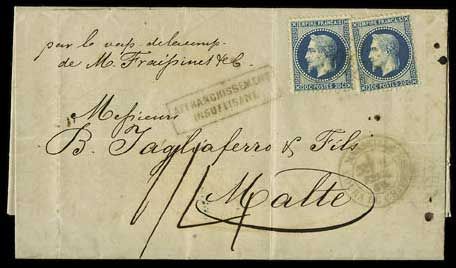 par le vap. de la comp.
de M. Fraissinet & C.
EMPIRE FRANÇAIS
20C POSTES 20C
EMPIRE FRANÇAIS
20C POSTES 20C
AFFRANCHISSEMENT
INSUFFISANT
Messieurs
B. Tagliaferro & Fils
Malte